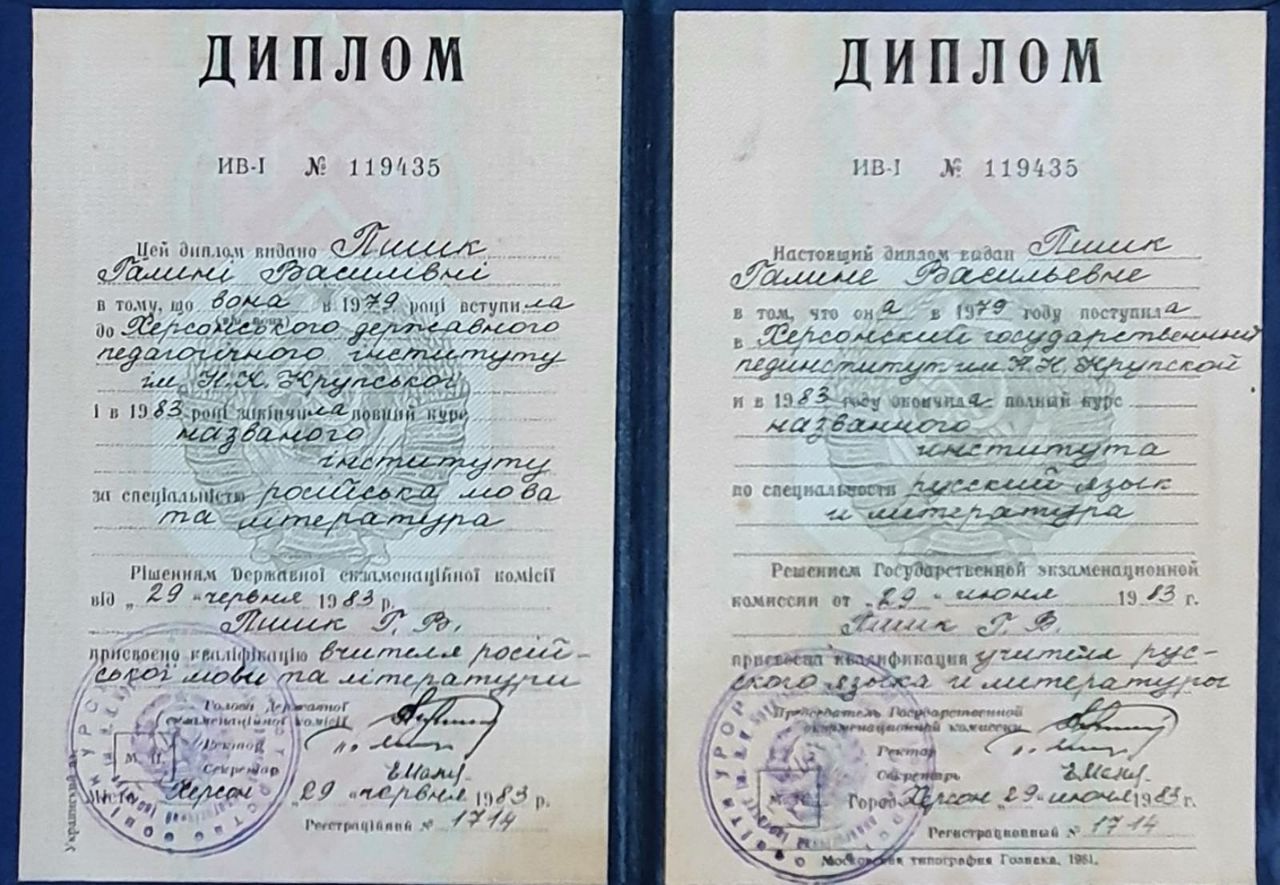 ДИПЛОМ
ИВ-I № 119435
Цей диплом видано Пшик
Галині Василівні
в тому, що вона в 1979 році вступила
(він, вона)
до Херсонського державного
педагогічного інституту
ім. Н.К. Крупської
і в 1983 році закінчила повний курс
названого
інституту
за спеціальністю російська мова
та література
Рішенням Державної екзаменаційної комісії
від „29 " червня 1983 р.
Пшик Г. В.
присвоєно кваліфікацію вчителя росій-
ської мови та літератури
Голова Державної
екзаменаційної комісії
Ректор
Секретар
М. П.
Місто Херсон „29 " червня 1983 р.
Реєстраційний № 1714
ДИПЛОМ
ИВ-I № 119435
Настоящий диплом выдан Пшик
Галине Васильевне
в том, что она в 1979 году поступила
в Херсонский государственный
пединститут им. Н.К. Крупской
и в 1983 году окончила полный курс
названного
института
по специальности русский язык
и литература
Решением Государственной экзаменационной
комиссии от „29 " июня 1983 г.
Пшик Г. В.
присвоена квалификация учителя рус-
ского языка и литературы
Председатель Государственной
экзаменационной комиссии
Ректор
Секретарь
М. П.
Город Херсон „29 " июня 1983 г.
Регистрационный № 1714
Московская типография Гознака, 1981.